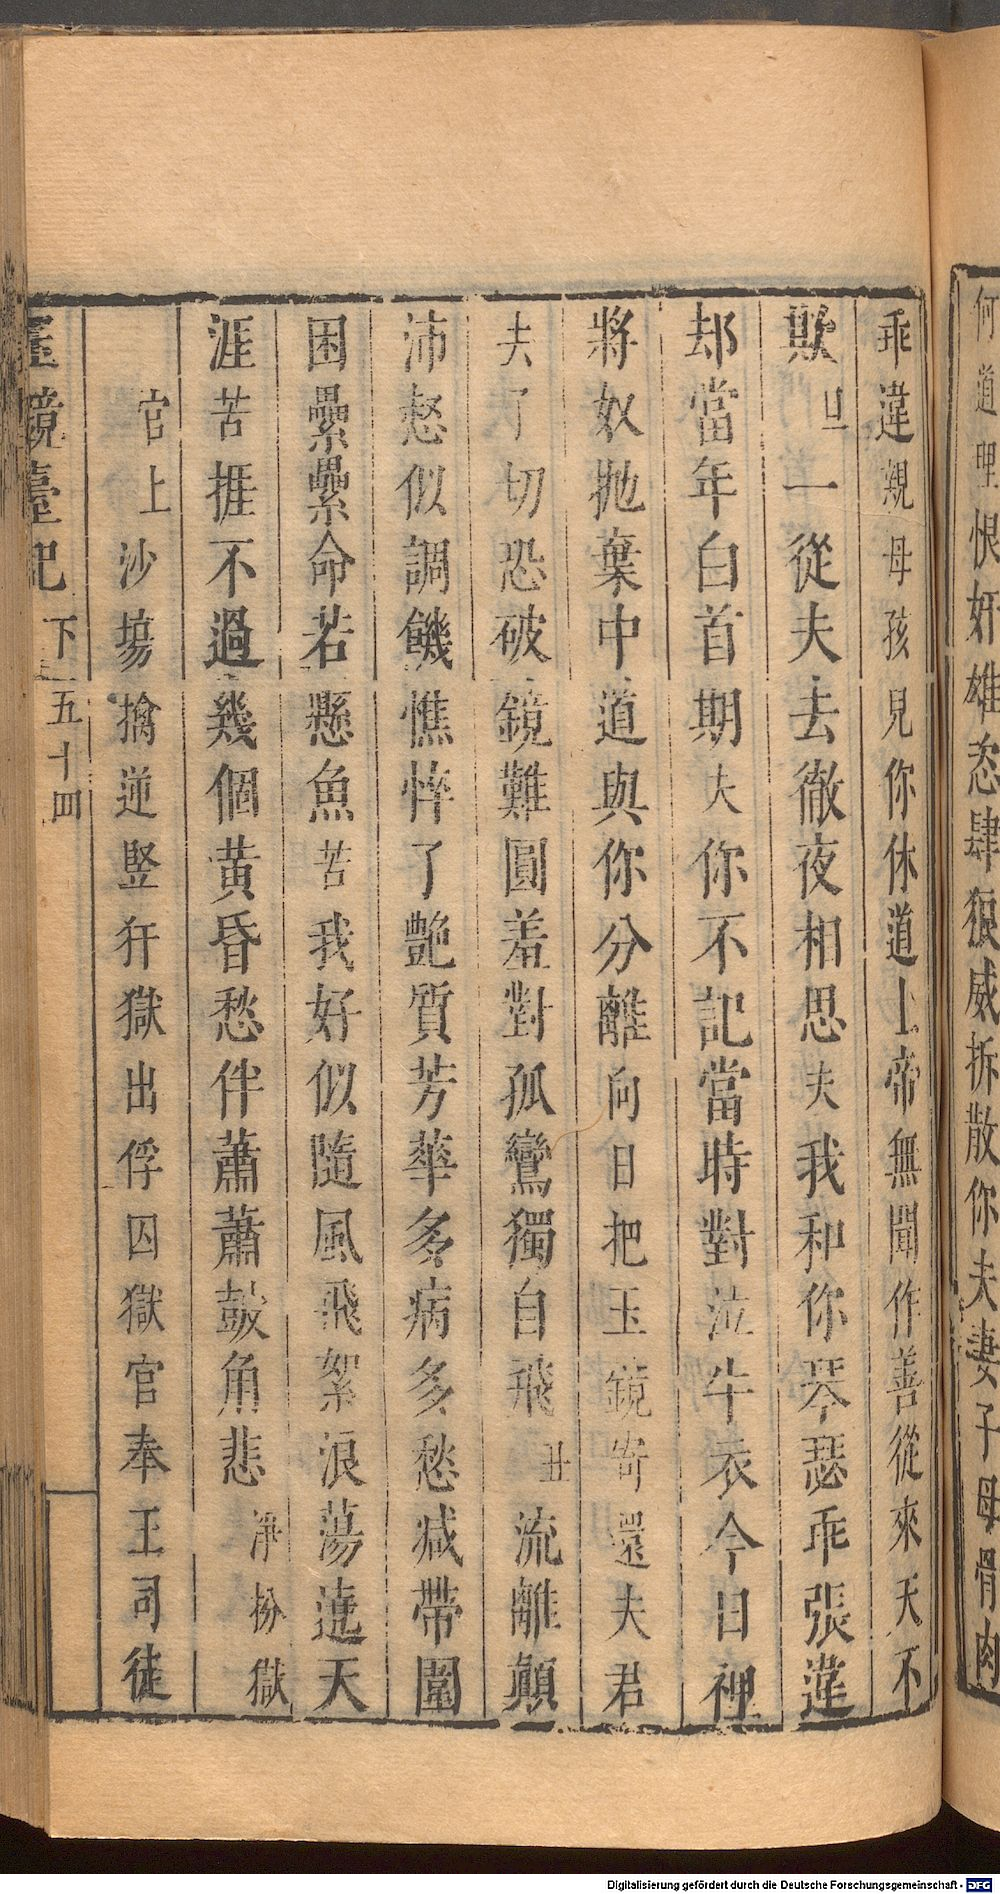 何道理恨奸雄恣肆狼威拆散你夫妻子母骨肉
乖違親母孩兒你休道上帝無聞作善從來天不
欺旦一從夫去徹夜相思夫我和你琴瑟乖張違
却當年白首期夫你不記當時對泣牛衣今日裡
將奴拋棄中道與你分離向日把玉鏡寄還夫君
夫了切恐破鏡難圓羞對孤鸞獨自飛丑流離顛
沛愁似調饑憔悴了艷質芳華多病多愁減帶圍
困纍纍命若懸魚苦我好似隨風飛絮浪蕩遶天
涯苦捱不過幾個黃昏愁伴蕭蕭鼓角悲淨扮獄
官上沙塲擒逆竪犴獄出俘囚獄官奉王司徒
玉鏡臺記下五十四
Digitalisierung gefördert durch die Deutsche Forschungsgemeinschaft - DFG